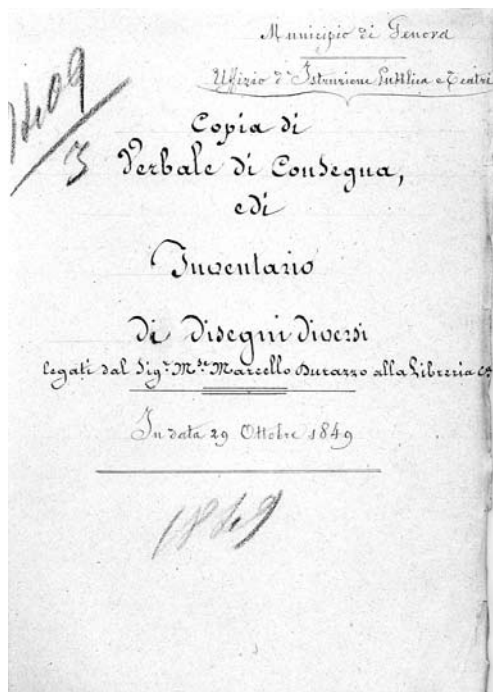 Municipio di Genova
Uffizio d'Istruzione Pubblica e Teatri
1409
3
Copia di
Verbale di Consegna,
e di
Inventario
di disegni diversi
legati dal Sigr. Mse. Marcello Durazzo alla Libreria
In data 29 Ottobre 1849
1849